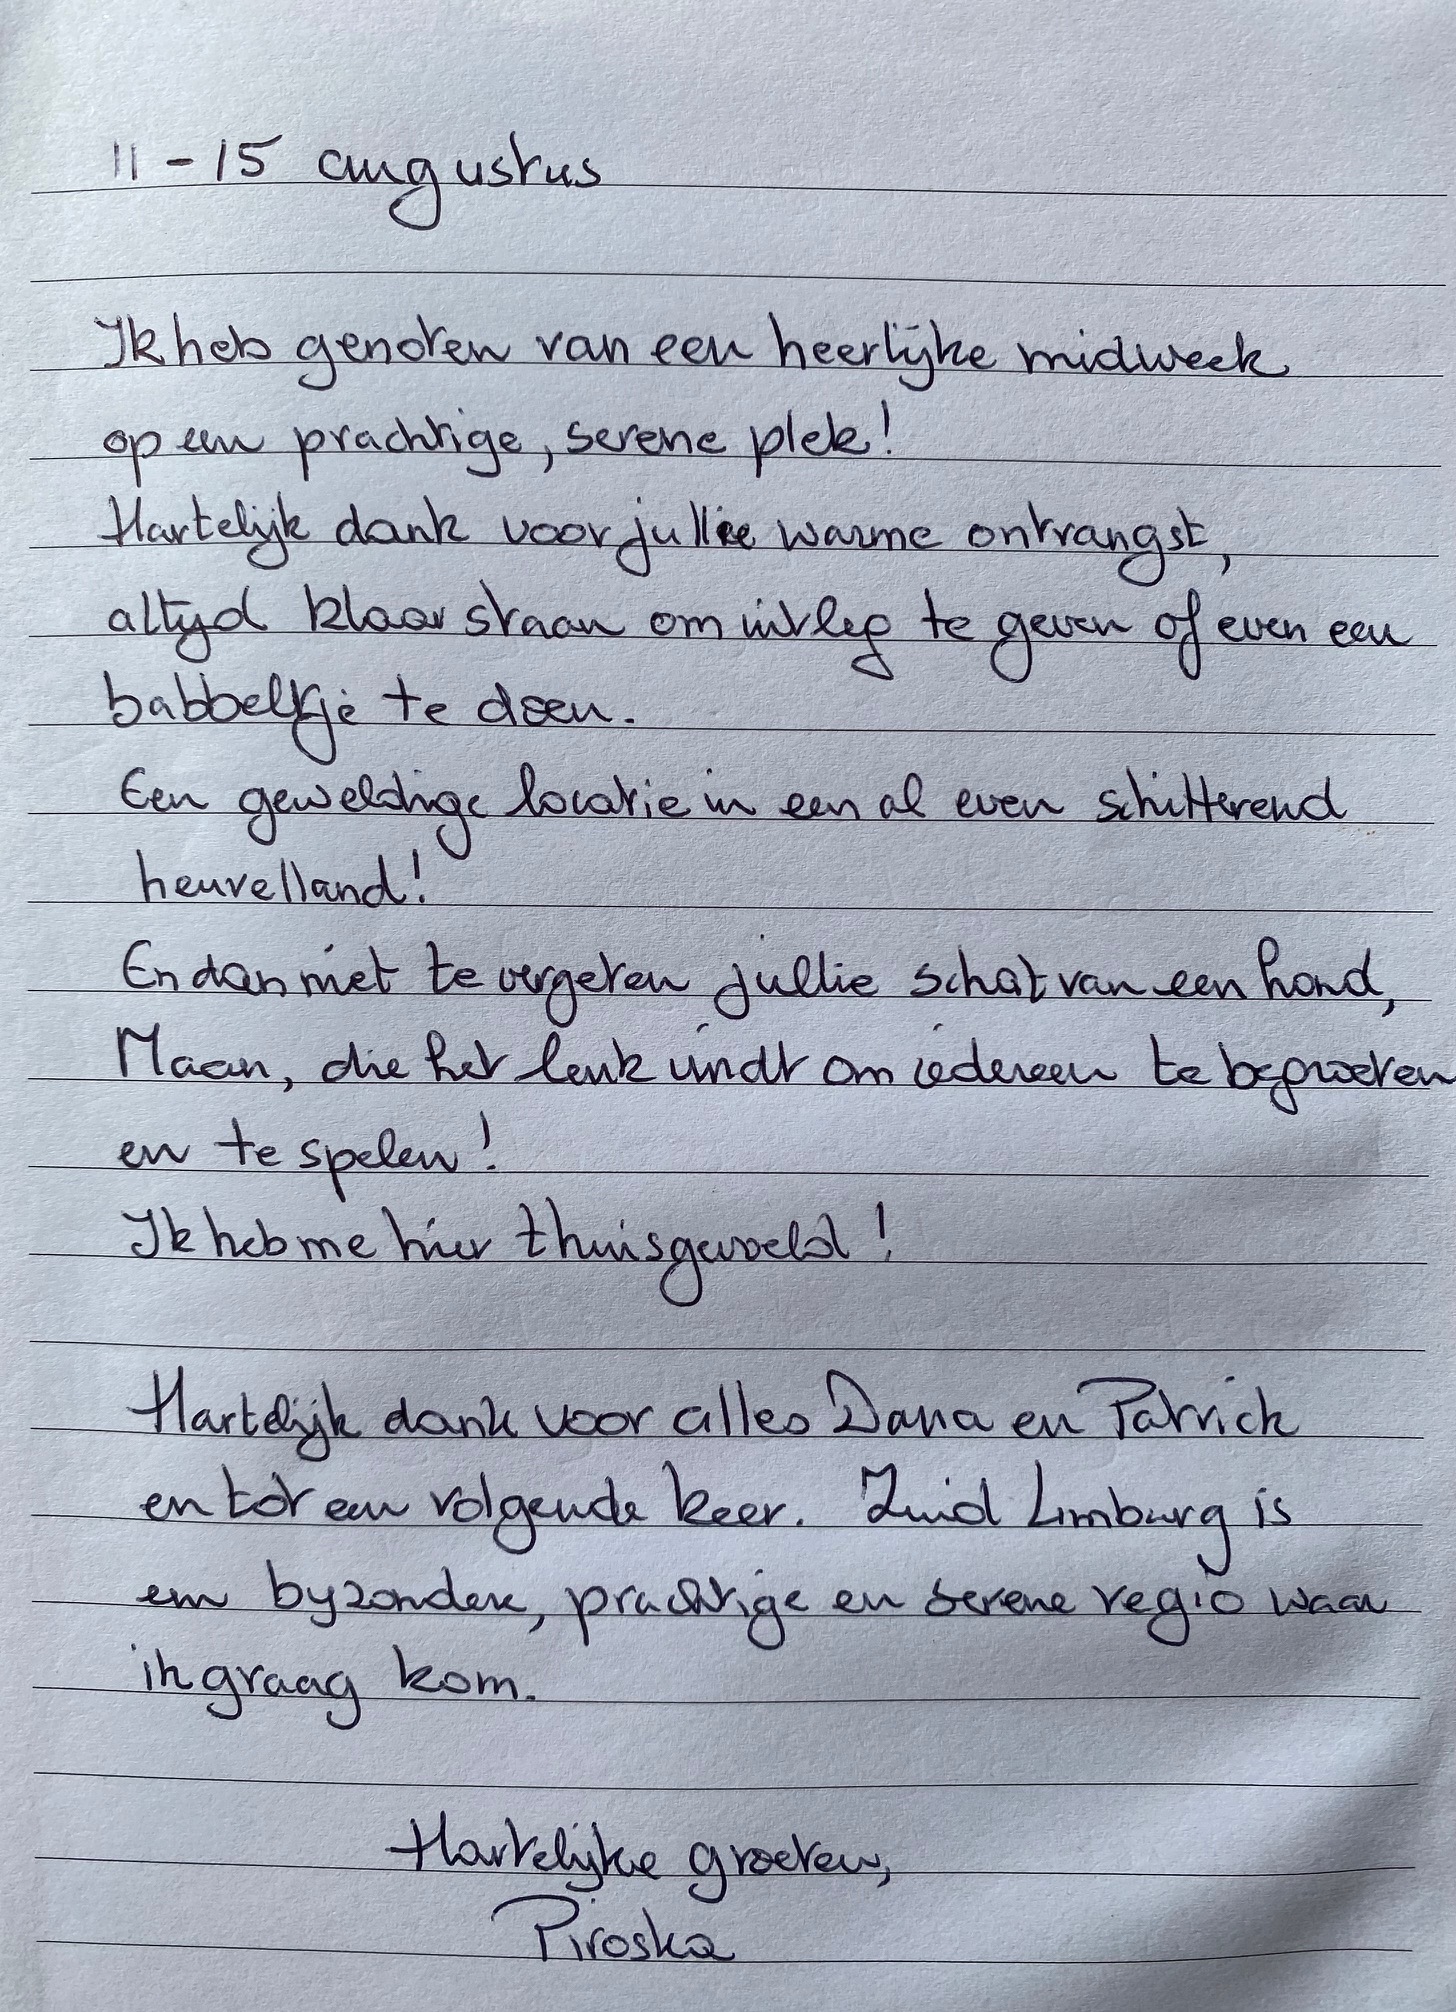 11 - 15 augustus
Ik heb genoten van een heerlijke midweek
op een prachtige, serene plek!
Hartelijk dank voor jullie warme ontvangst,
altijd klaar staan om uitleg te geven of even een
babbeltje te doen.
Een geweldige locatie in een al even schitterend
heuvelland!
En dan niet te vergeten jullie schat van een hond,
Maan, die het leuk vindt om iedereen te begroeten
en te spelen!
Ik heb me hier thuisgevoeld!
Hartelijk dank voor alles Dana en Patrick
en tot een volgende keer. Zuid Limburg is
een bijzondere, prachtige en serene regio waar
ik graag kom.
Hartelijke groeten,
Piroska